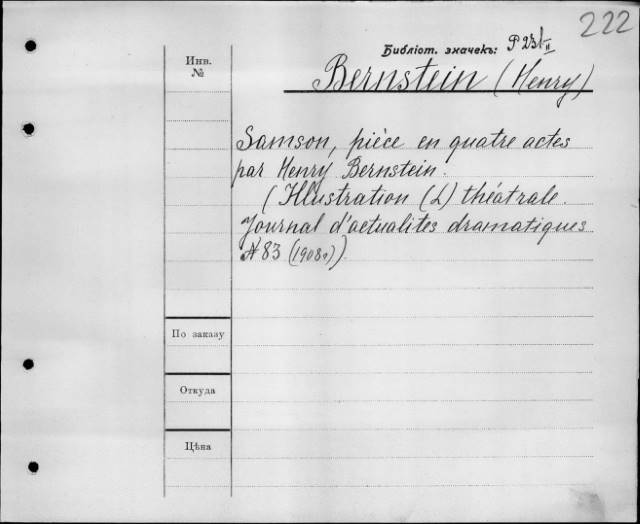 222
Библіот. значекъ: P 23 1/II
Инв.
№
Bernstein (Henry)
Samson, pièce en quatre actes
par Henry Bernstein.
(Illustration (L') théatrale.
Journal d'actualités dramatiques
№ 83 (1908г)).
По заказу
Откуда
Цѣна